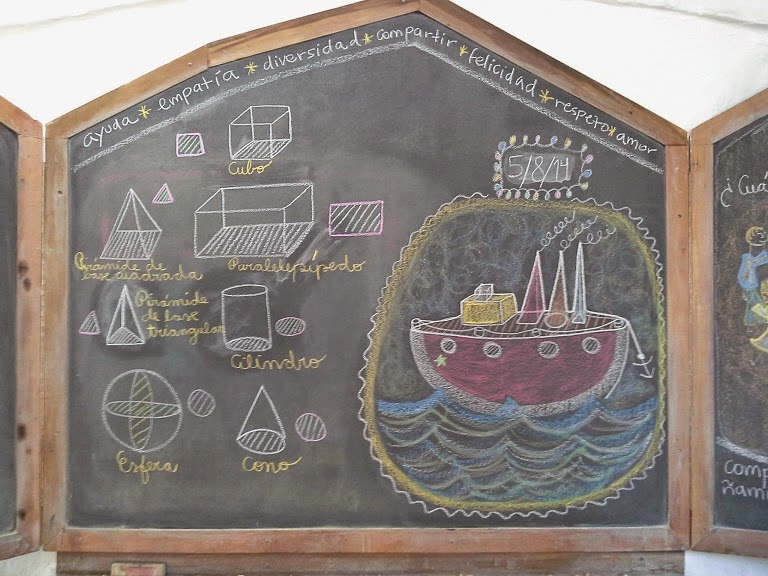 ayuda * empatía * diversidad * compartir * felicidad * respeto * amor
5/8/14
Cubo
Pirámide de
base cuadrada
Paralelepípedo
Pirámide
de base
triangular
Cilindro
Esfera
Cono
¿Cuá
comp
ñami